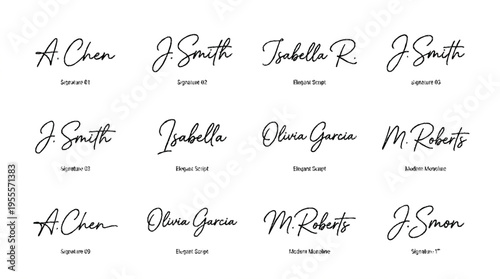 A. Chen J. Smith Isabella R. J. Smith
Signature 01 Signature 02 Elegant Script Signature 03
J. Smith Isabella Olivia Garcia M. Roberts
Elegant Script Elegant Script Modern Monoline
A. Chen Olivia Garcia M. Roberts J. Smon
Signature 09 Elegant Script Modern Monoline Signature
Adobe Stock | #1955571383